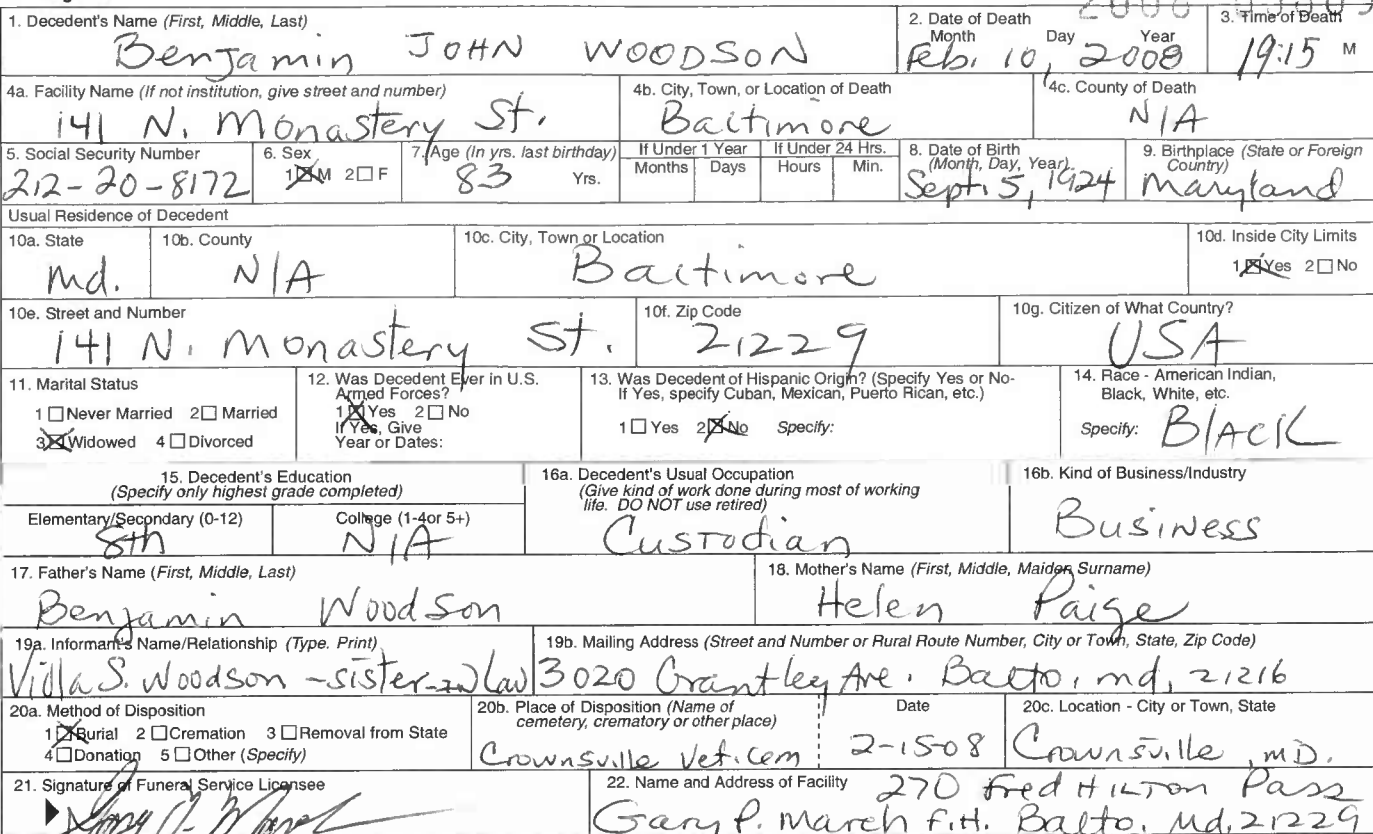 1. Decedent's Name (First, Middle, Last)
Benjamin JOHN WOODSON
2. Date of Death
Month Day Year
Feb. 10, 2008
3. Time of Death
19:15 M
4a. Facility Name (If not institution, give street and number)
141 N. Monastery St.
4b. City, Town, or Location of Death
Baltimore
4c. County of Death
N/A
5. Social Security Number
212-20-8172
6. Sex
1☒M 2☐F
7. Age (In yrs. last birthday)
83 Yrs.
If Under 1 Year
Months Days
If Under 24 Hrs.
Hours Min.
8. Date of Birth
(Month, Day, Year)
Sept. 5, 1924
9. Birthplace (State or Foreign
Country)
Maryland
Usual Residence of Decedent
10a. State
Md.
10b. County
N/A
10c. City, Town or Location
Baltimore
10d. Inside City Limits
1☒Yes 2☐No
10e. Street and Number
141 N. Monastery St.
10f. Zip Code
21229
10g. Citizen of What Country?
USA
11. Marital Status
1☐Never Married 2☐Married
3☒Widowed 4☐Divorced
12. Was Decedent Ever in U.S.
Armed Forces?
1☒Yes 2☐No
If Yes, Give
Year or Dates:
13. Was Decedent of Hispanic Origin? (Specify Yes or No-
If Yes, specify Cuban, Mexican, Puerto Rican, etc.)
1☐Yes 2☒No Specify:
14. Race - American Indian,
Black, White, etc.
Specify: BlACK
15. Decedent's Education
(Specify only highest grade completed)
Elementary/Secondary (0-12)
8th
College (1-4or 5+)
N/A
16a. Decedent's Usual Occupation
(Give kind of work done during most of working
life. DO NOT use retired)
Custodian
16b. Kind of Business/Industry
Business
17. Father's Name (First, Middle, Last)
Benjamin Woodson
18. Mother's Name (First, Middle, Maiden Surname)
Helen Paige
19a. Informant's Name/Relationship (Type. Print)
S. Woodson - sister-in law
19b. Mailing Address (Street and Number or Rural Route Number, City or Town, State, Zip Code)
3020 Grantley Ave. Balto, md, 21216
20a. Method of Disposition
1☒Burial 2☐Cremation 3☐Removal from State
4☐Donation 5☐Other (Specify)
20b. Place of Disposition (Name of
cemetery, crematory or other place)
Crownsville Vet. Cem
Date
2-15-08
20c. Location - City or Town, State
Crownsville, MD.
21. Signature of Funeral Service Licensee
22. Name and Address of Facility
270 Fred HILTON Pass
Gary P. March F.H. Balto, Md, 21229